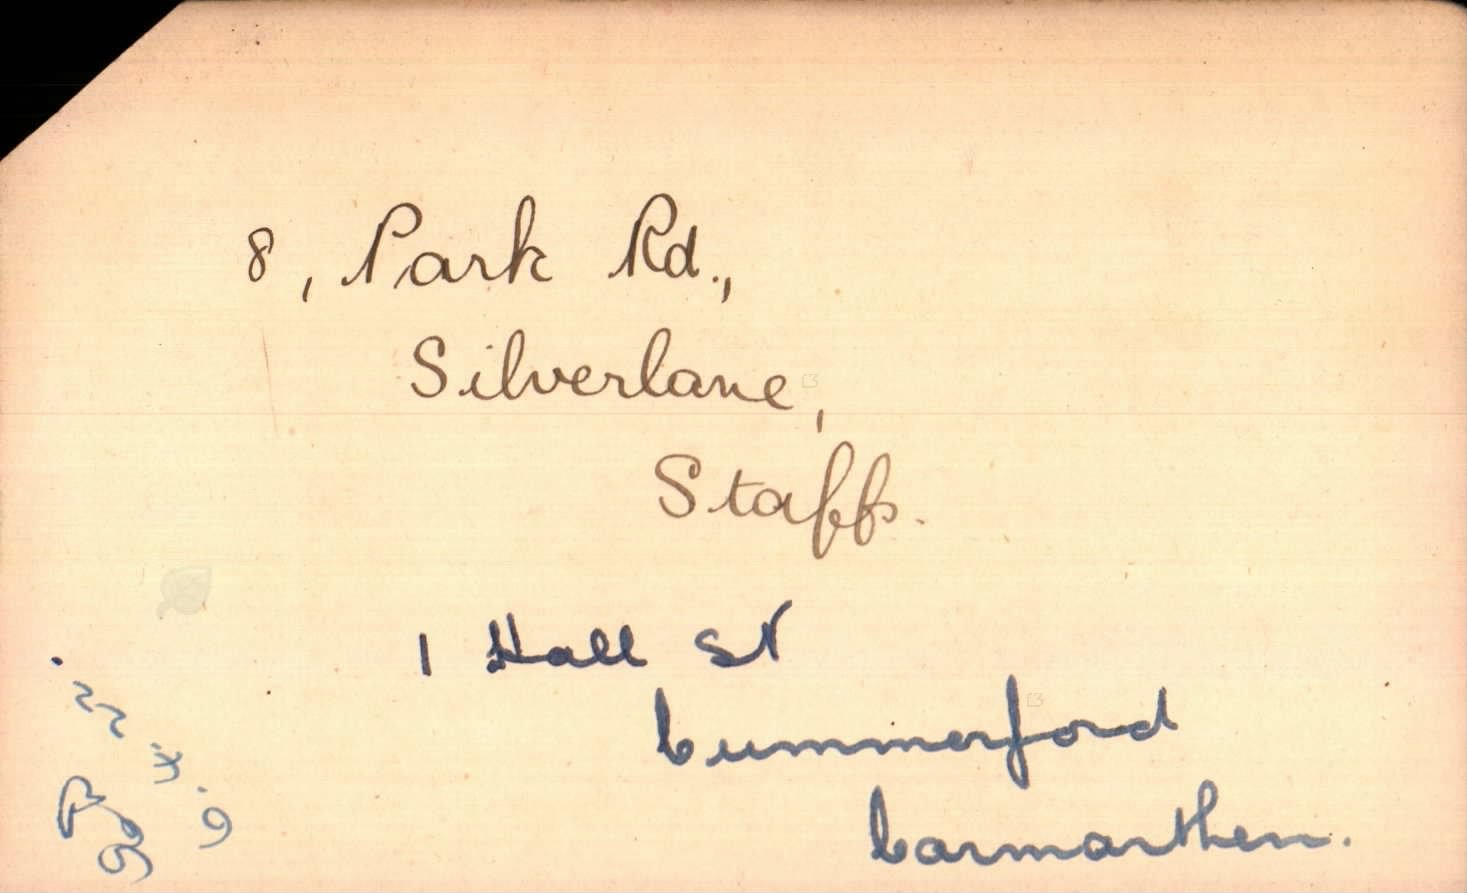 8, Park Rd.,
Silverlane,
Staffs.
1 Hall St
Cummerford
Carmarthen.